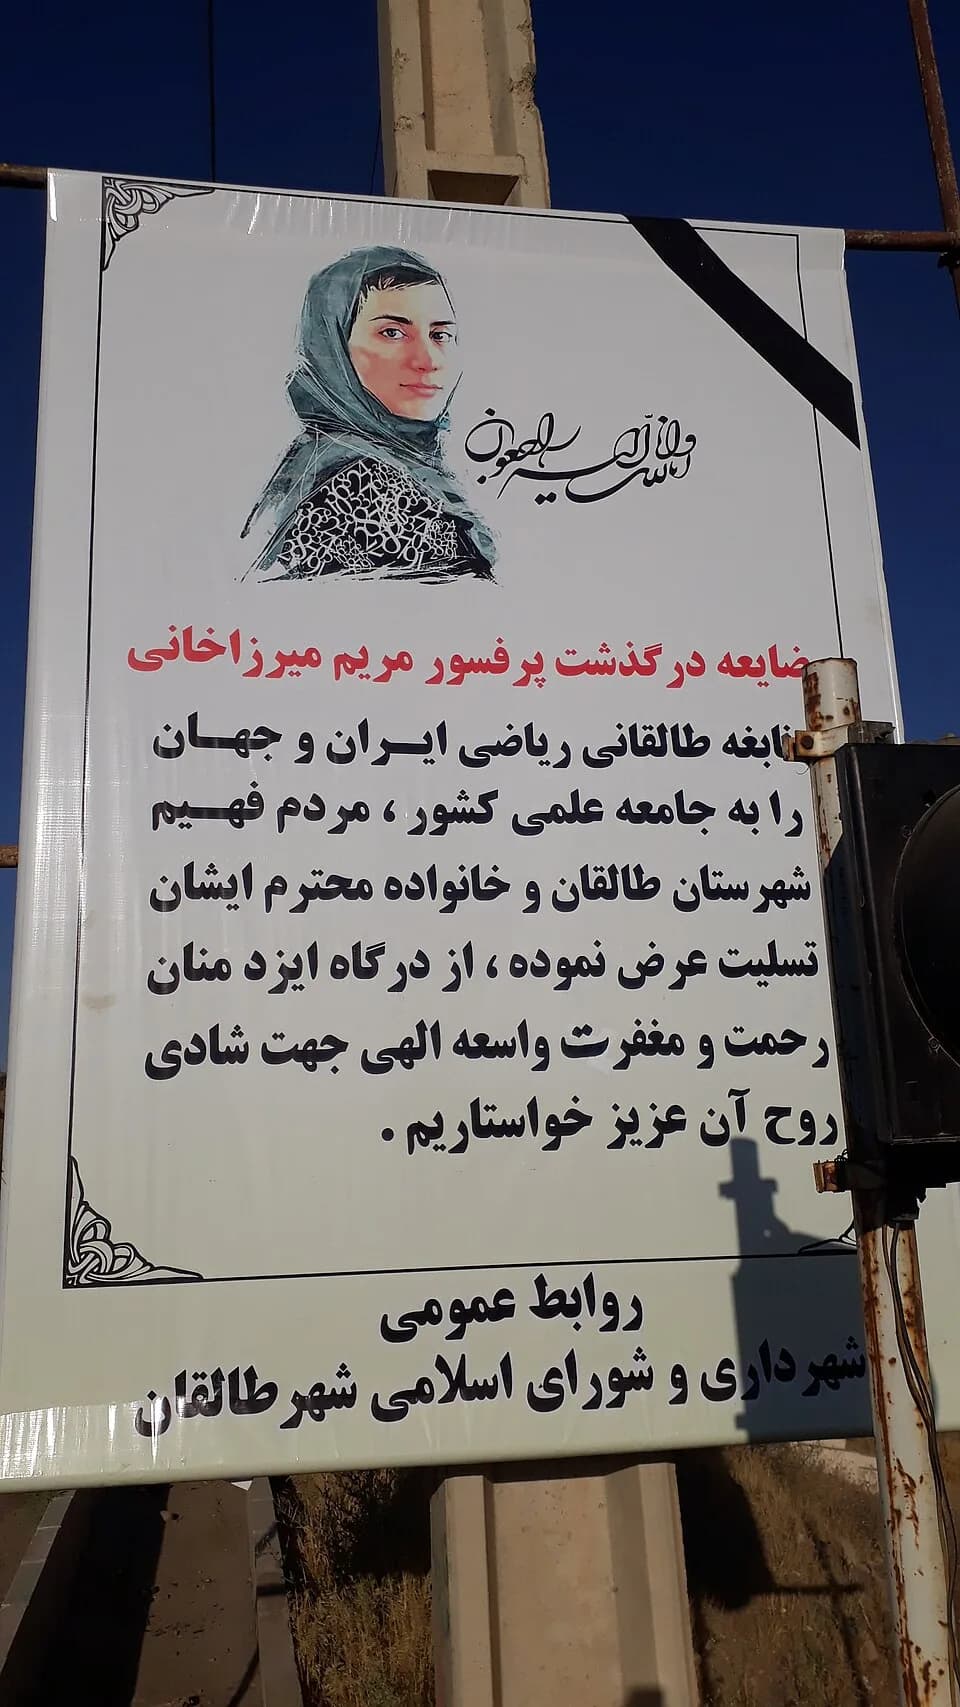 انا لله و انا الیه راجعون
ضایعه درگذشت پرفسور مریم میرزاخانی
نابغه طالقانی ریاضی ایران و جهان
را به جامعه علمی کشور ، مردم فهیم
شهرستان طالقان و خانواده محترم ایشان
تسلیت عرض نموده ، از درگاه ایزد منان
رحمت و مغفرت واسعه الهی جهت شادی
روح آن عزیز خواستاریم .
روابط عمومی
شهرداری و شورای اسلامی شهر طالقان